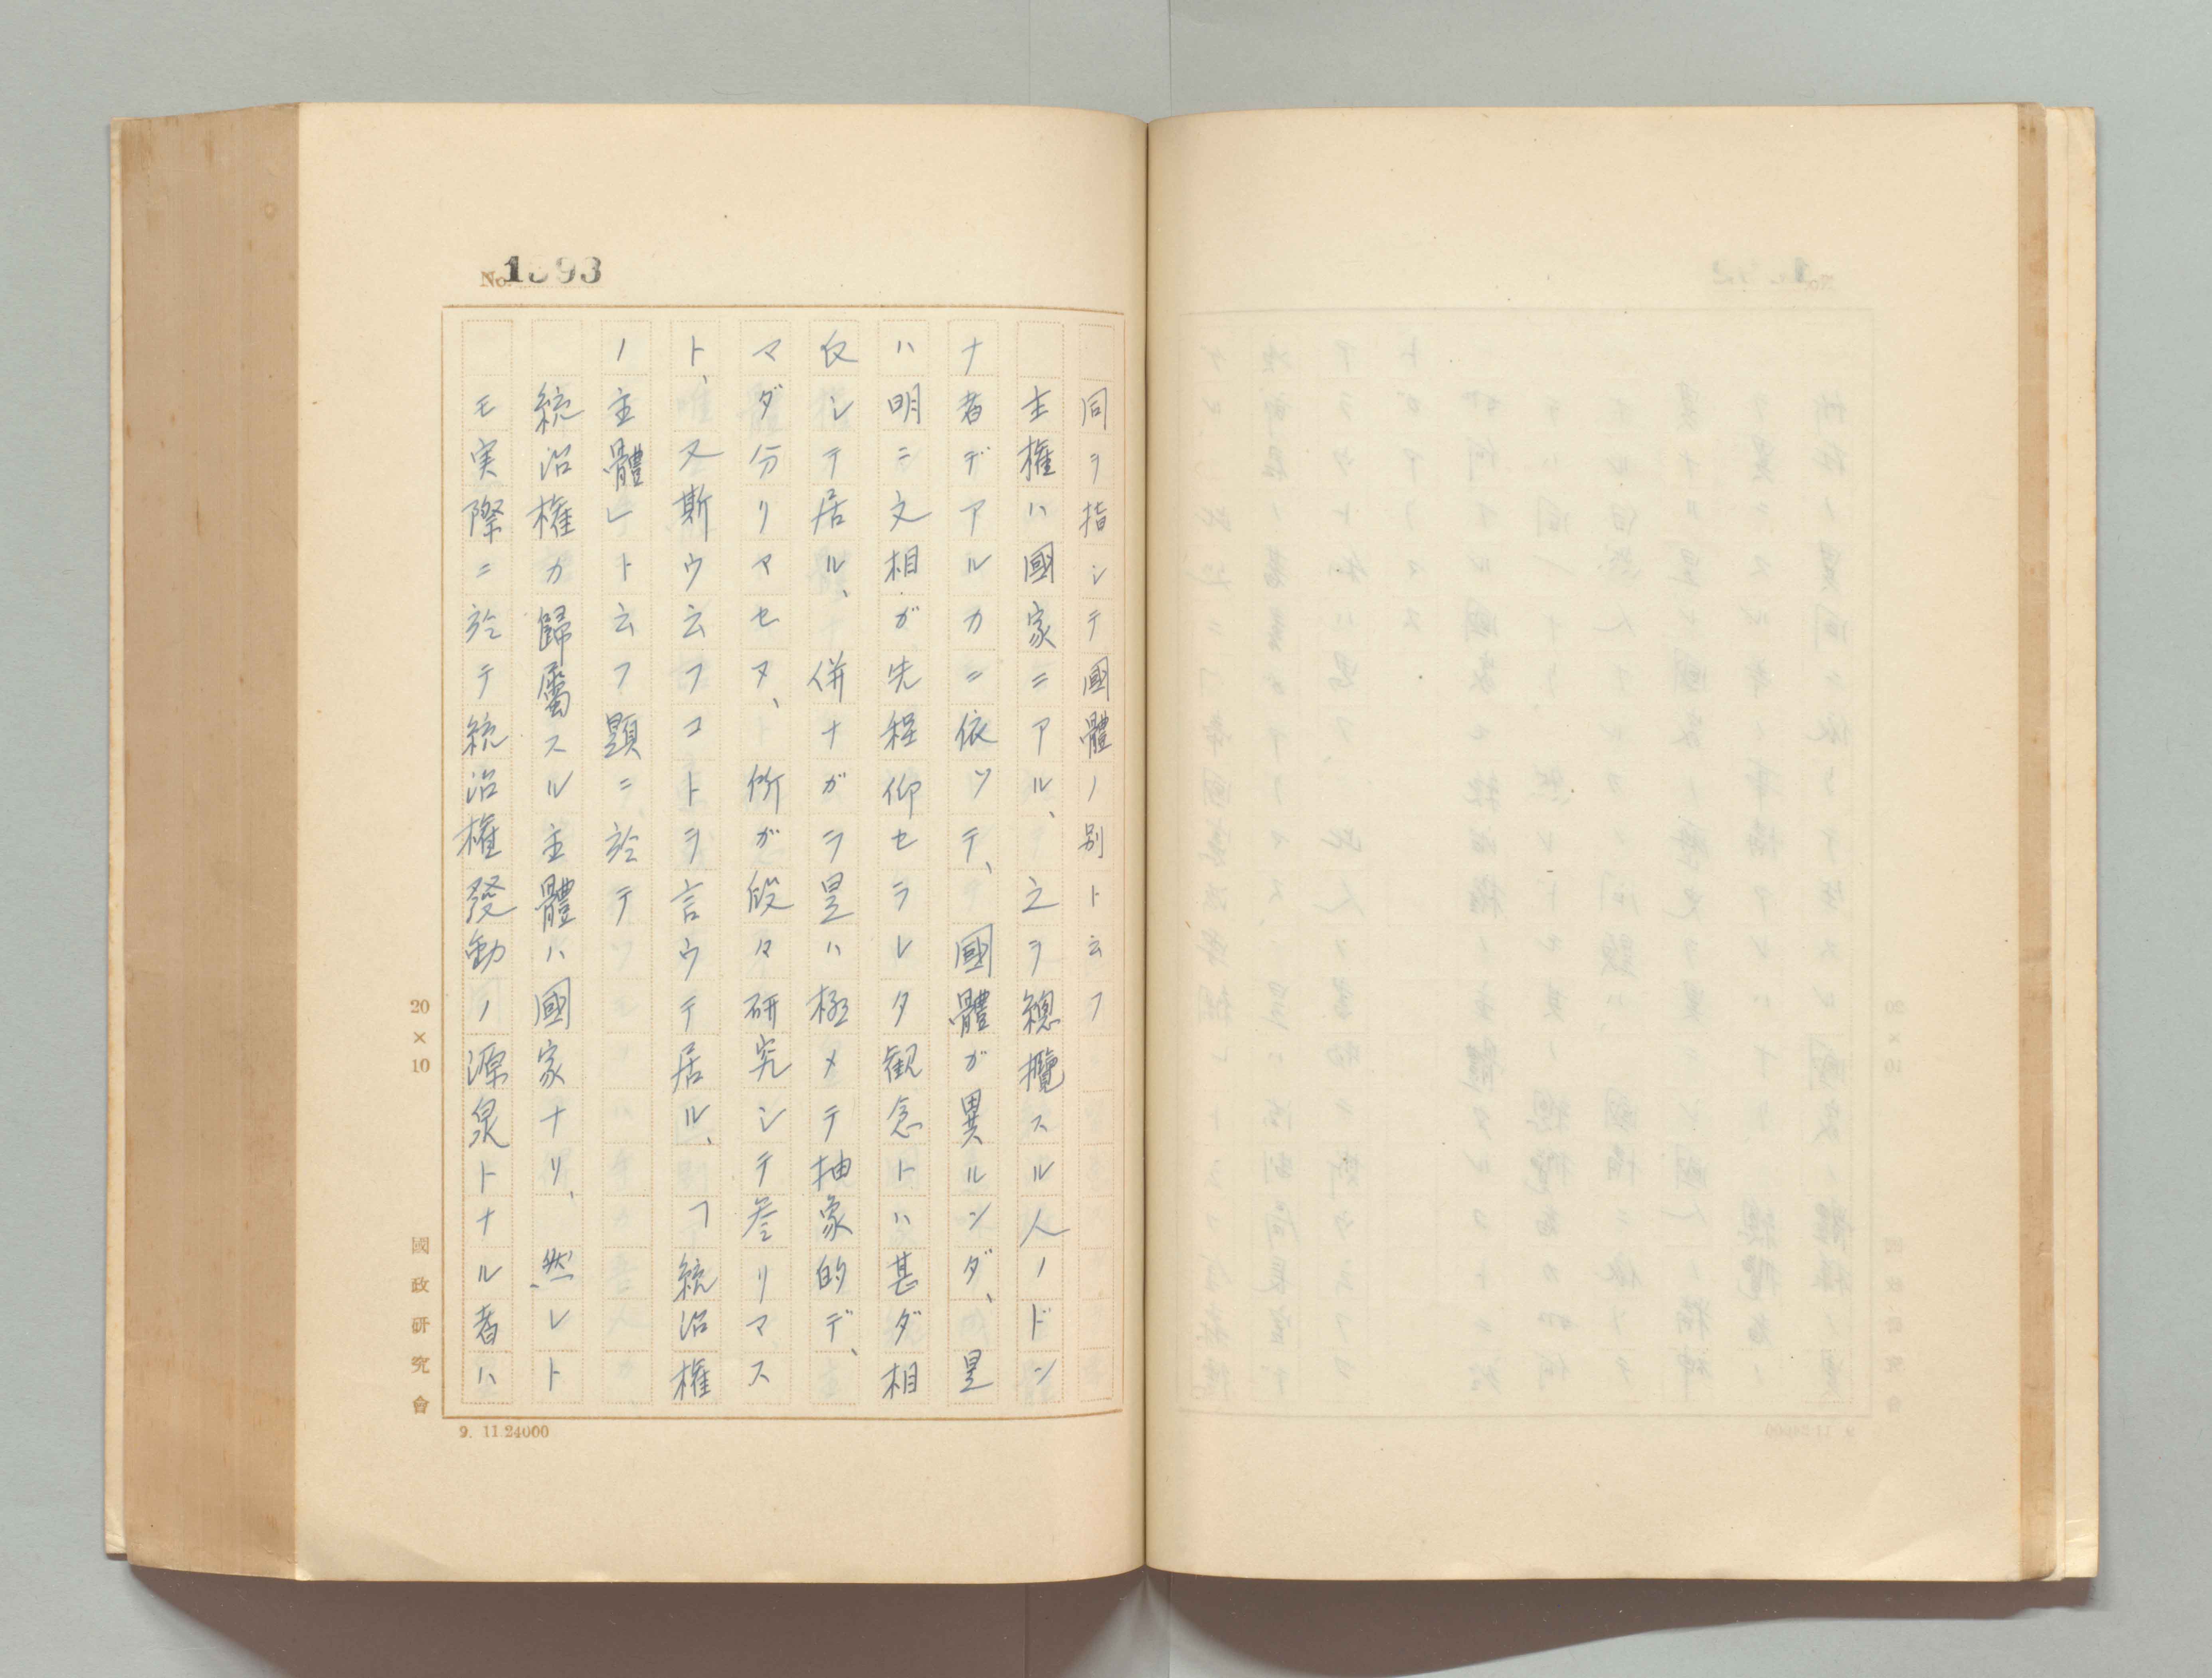 No. 1393
同ヲ指シテ國體ノ別ト云フ
主権ハ國家ニアル、之ヲ總攬スル人ノドン
ナ者デアルカニ依ツテ、國體ガ異ルンダ、是
ハ明ニ文相ガ先程仰セラレタ観念トハ甚ダ相
反シテ居ル、併ナガラ是ハ極メテ抽象的デ、
マダ分リマセヌ、所ガ段々研究シテ參リマス
ト、又斯ウ云フコトヲ言ウテ居ル、「統治権
ノ主體」ト云フ題ニ於テ
統治権カ歸屬スル主體ハ國家ナリ、然レト
モ実際ニ於テ統治権發動ノ源泉トナル者ハ
20×10
國政研究會
9. 11 24000